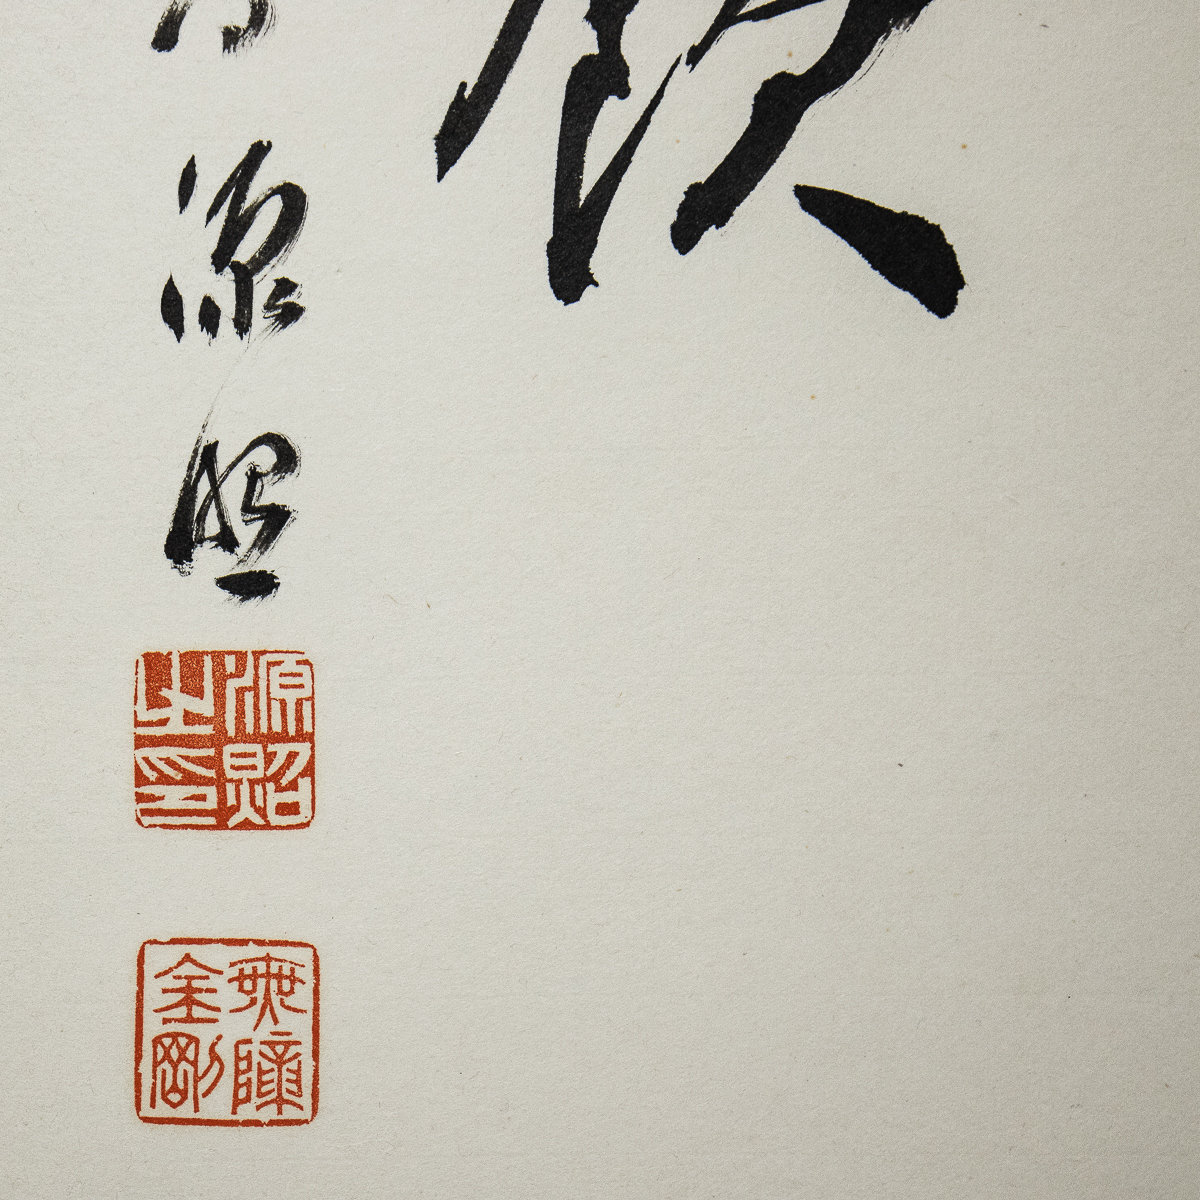 源照
源照之印
無障金剛